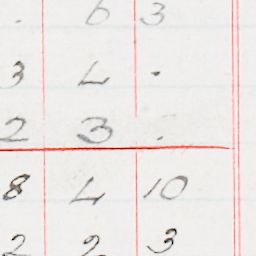 . 6 3
3 4 .
2 3 .
8 4 10
2 2 3